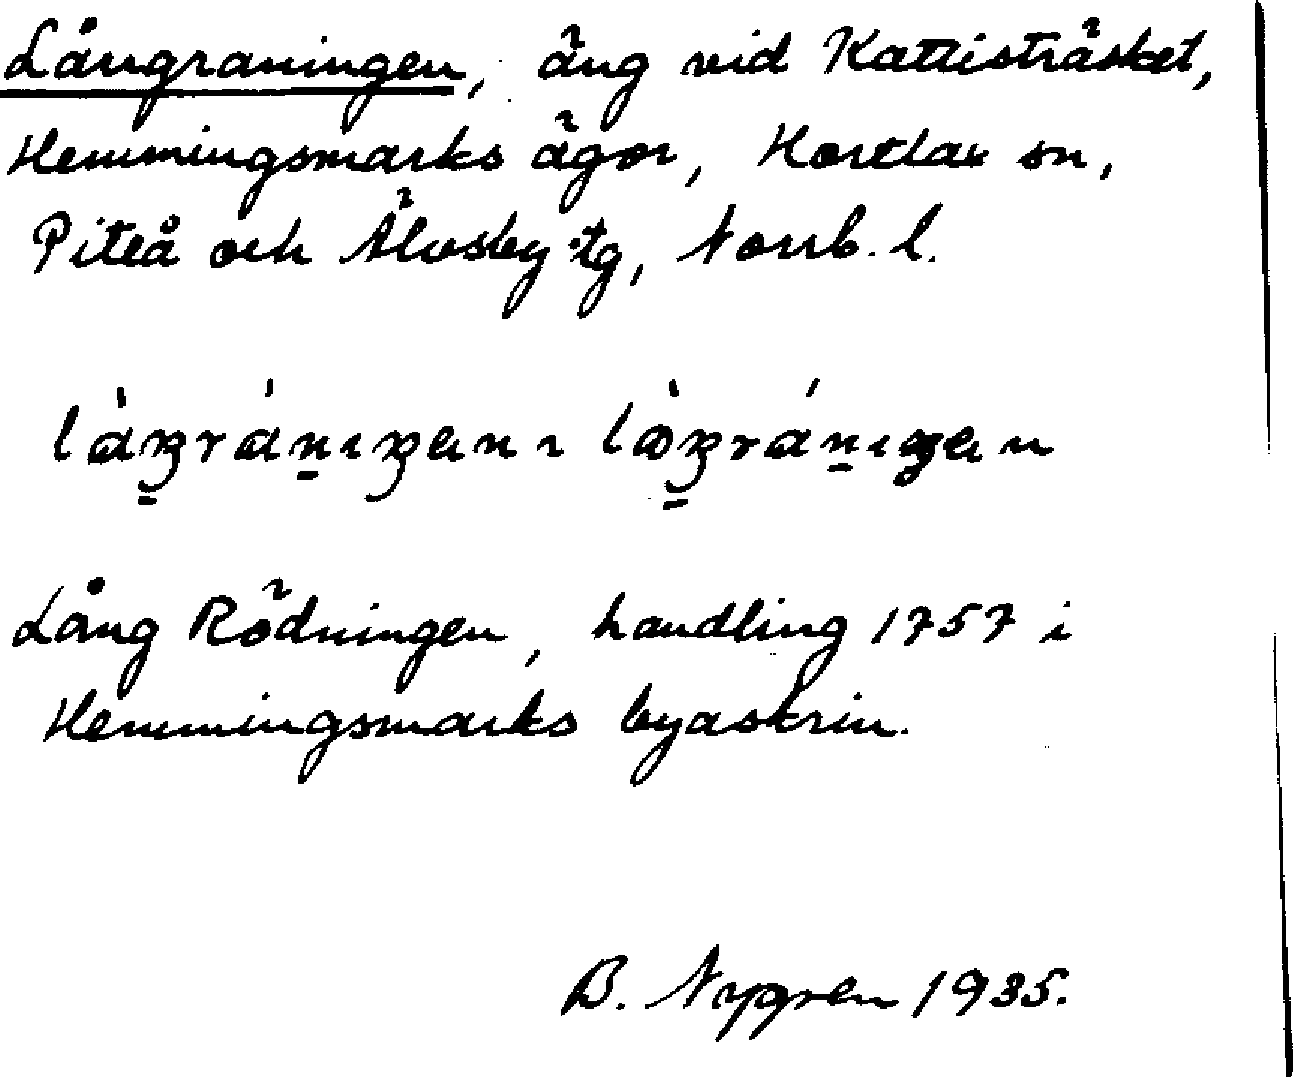 Långraningen, äng vid Kattisträsket,
Hemmingsmarks ägor, Hortlax sn,
Piteå och Älvsby tg, Norrb. l.
Lång Rödningen, handling 1757 i
Hemmingsmarks byaskrin.
B. Nygren 1935.